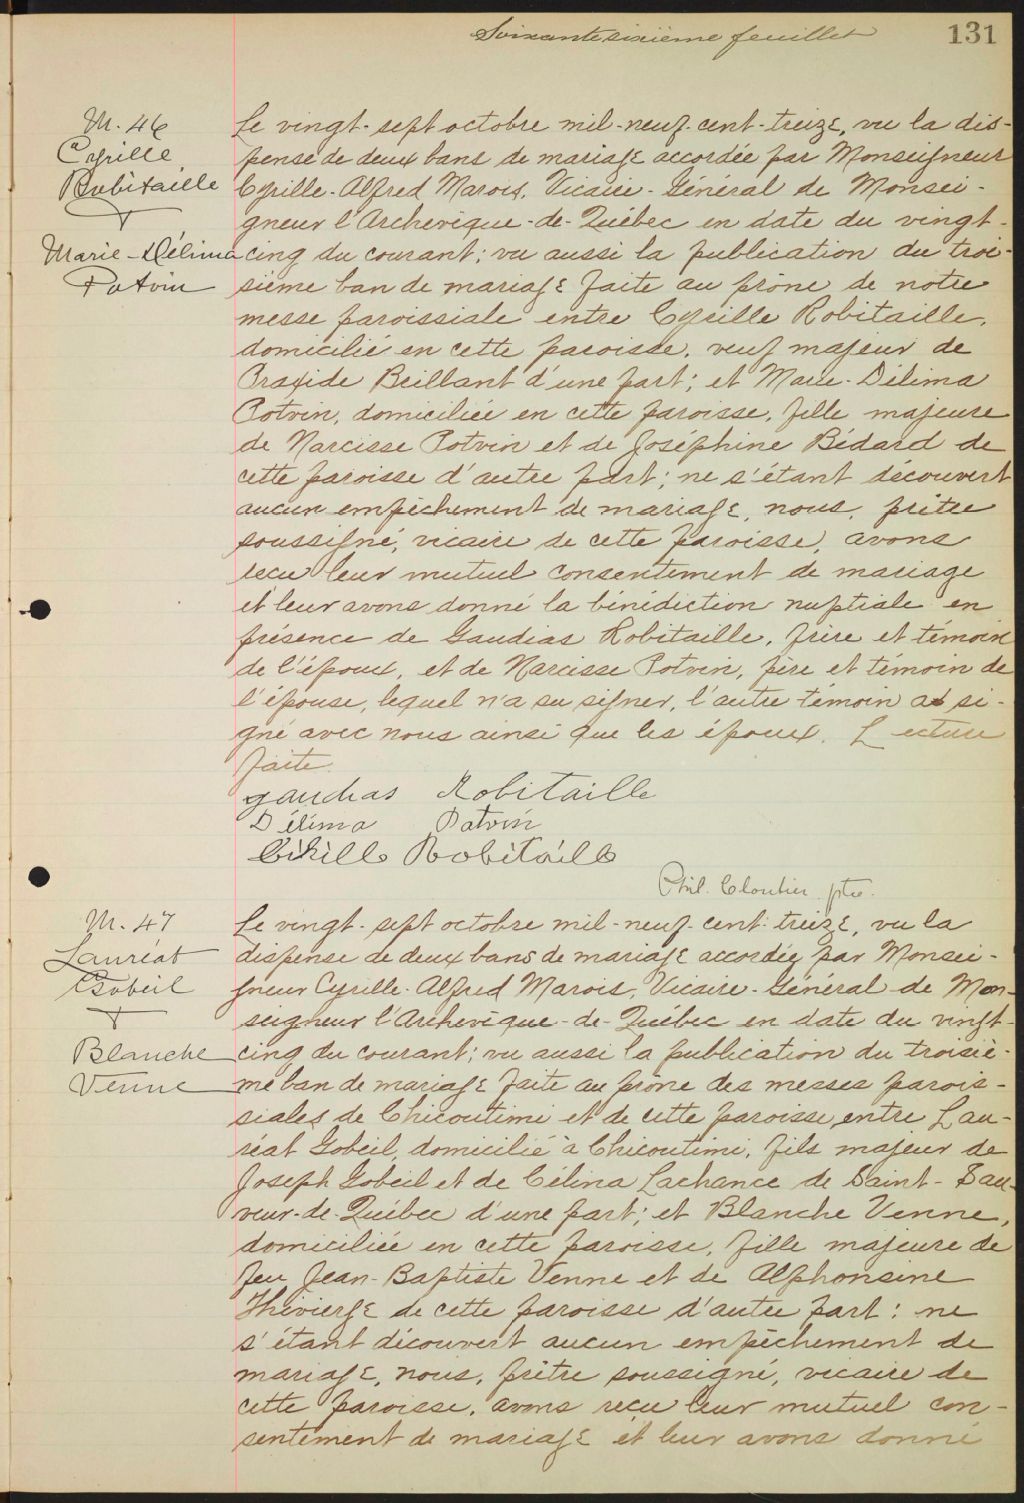 Soixante sixième feuillet
131
M. 46
Cyrille
Robitaille
&
Marie-Délima
Potvin
Le vingt-sept octobre mil-neuf-cent-treize, vu la dis-
pense de deux bans de mariage accordée par Monseigneur
Cyrille-Alfred Marois, Vicaire-Général de Monsei-
gneur l'Archevêque-de-Québec en date du vingt-
cinq du courant; vu aussi la publication du troi-
sième ban de mariage faite au prône de notre
messe paroissiale entre Cyrille Robitaille,
domicilié en cette paroisse, veuf majeur de
Praxide Brillant d'une part; et Marie-Délima
Potvin, domiciliée en cette paroisse, fille majeure
de Narcisse Potvin et de Joséphine Bédard de
cette paroisse d'autre part; ne s'étant découvert
aucun empêchement de mariage, nous, prêtre
soussigné, vicaire de cette paroisse, avons
reçu leur mutuel consentement de mariage
et leur avons donné la bénédiction nuptiale en
présence de Gaudias Robitaille, frère et témoin
de l'époux, et de Narcisse Potvin, père et témoin de
l'épouse, lequel n'a su signer, l'autre témoin a si-
gné avec nous ainsi que les époux. Lecture
faite.
gaudias Robitaille
Délima Potvin
Cirille Robitaille
Phil. Cloutier ptre.
M. 47
Lauréat
Gobeil
&
Blanche
Venne
Le vingt-sept octobre mil-neuf-cent-treize, vu la
dispense de deux bans de mariage accordée par Monsei-
gneur Cyrille-Alfred Marois, Vicaire-Général de Mon-
seigneur l'Archevêque-de-Québec en date du vingt-
cinq du courant; vu aussi la publication du troisiè-
me ban de mariage faite au prône des messes parois-
siales de Chicoutimi et de cette paroisse, entre Lau-
réat Gobeil, domicilié à Chicoutimi, fils majeur de
Joseph Gobeil et de Célina Lachance de Saint-Sau-
veur-de-Québec d'une part; et Blanche Venne,
domiciliée en cette paroisse, fille majeure de
feu Jean-Baptiste Venne et de Alphonsine
Thivierge de cette paroisse d'autre part: ne
s'étant découvert aucun empêchement de
mariage, nous, prêtre soussigné, vicaire de
cette paroisse, avons reçu leur mutuel con-
sentement de mariage et leur avons donné